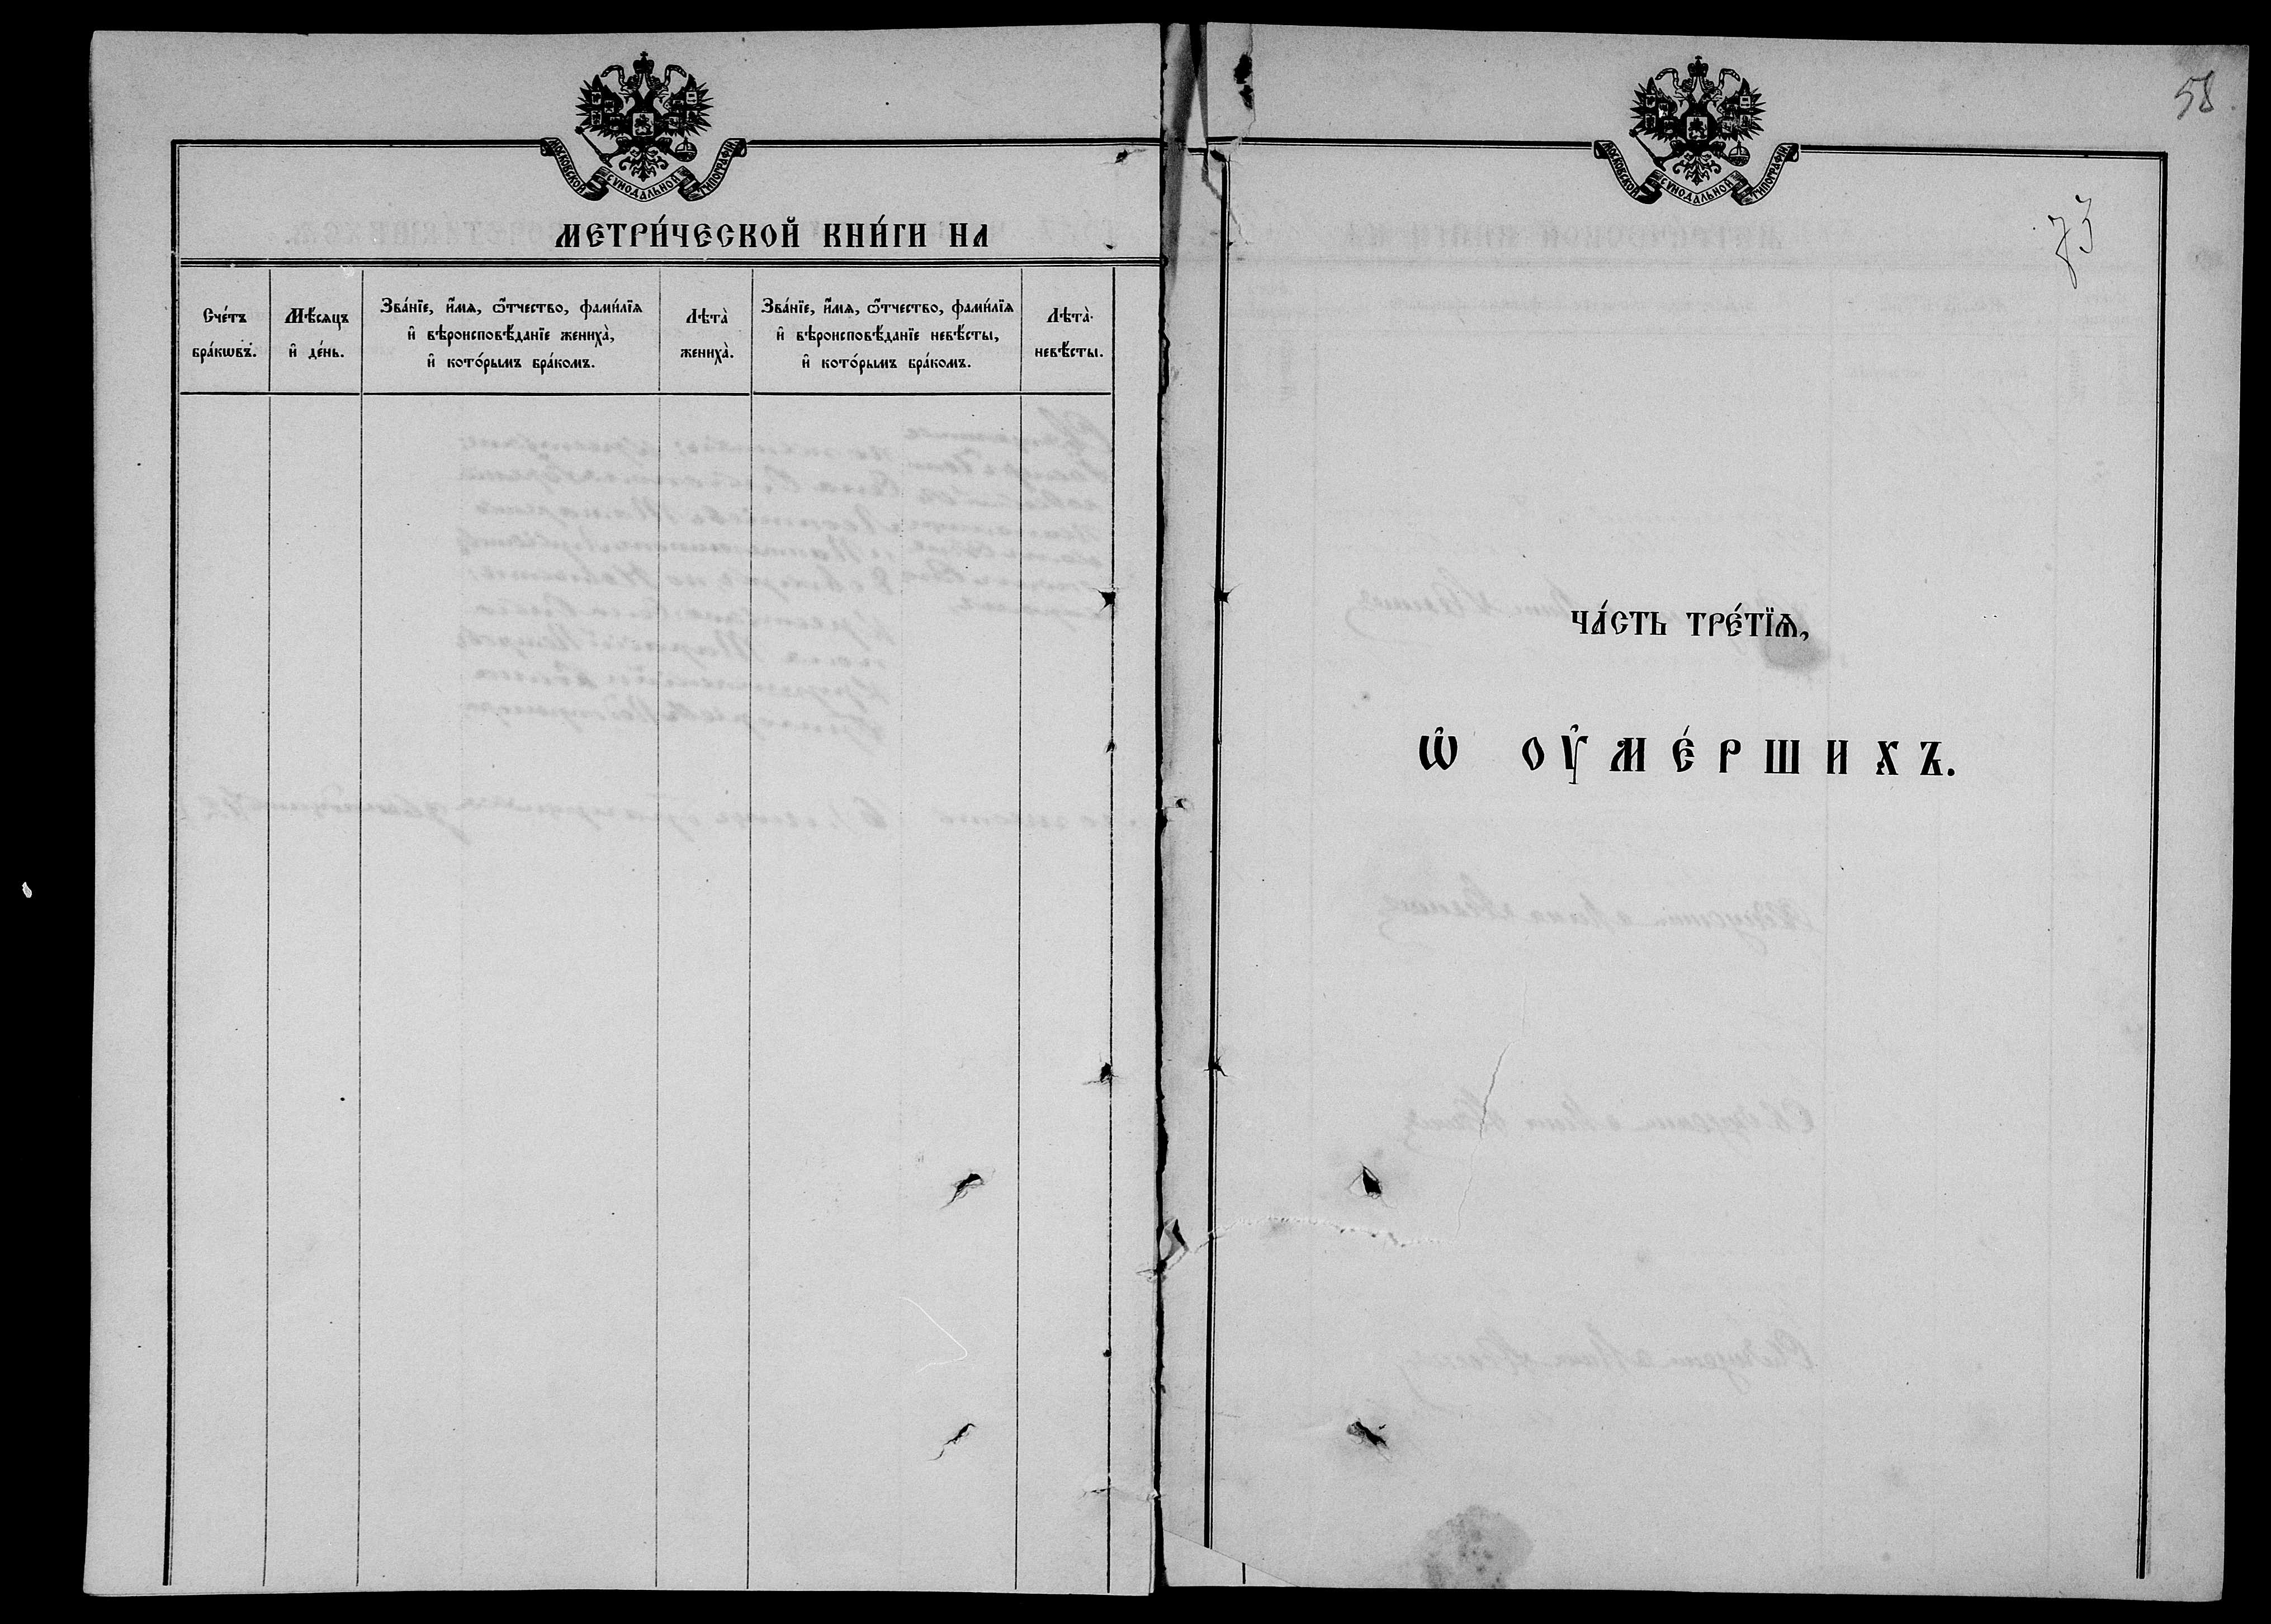 МОСКОВСКОЙ СѴНОДАЛЬНОЙ ТИПОГРАФІИ
МЕТРИ́ЧЕСКОЙ КНИ́ГИ НА
Сче́тъ
бра́кѡвъ.
Мѣ́сяцъ
и҆ де́нь.
Зва́нїе, и҆́мя, ѻ҆́тчество, фами́лїя
и҆ вѣроисповѣ́данїе жениха̀,
и҆ кото́рымъ бра́комъ.
Лѣта̀
жениха̀.
Зва́нїе, и҆́мя, ѻ҆́тчество, фами́лїя
и҆ вѣроисповѣ́данїе невѣ́сты,
и҆ кото́рымъ бра́комъ.
Лѣта̀
невѣ́сты.
58
МОСКОВСКОЙ СѴНОДАЛЬНОЙ ТИПОГРАФІИ
73
ЧА́СТЬ ТРЕ́ТЇѦ,
Ѡ҆ ОУ҆МЕ́РШИХЪ.